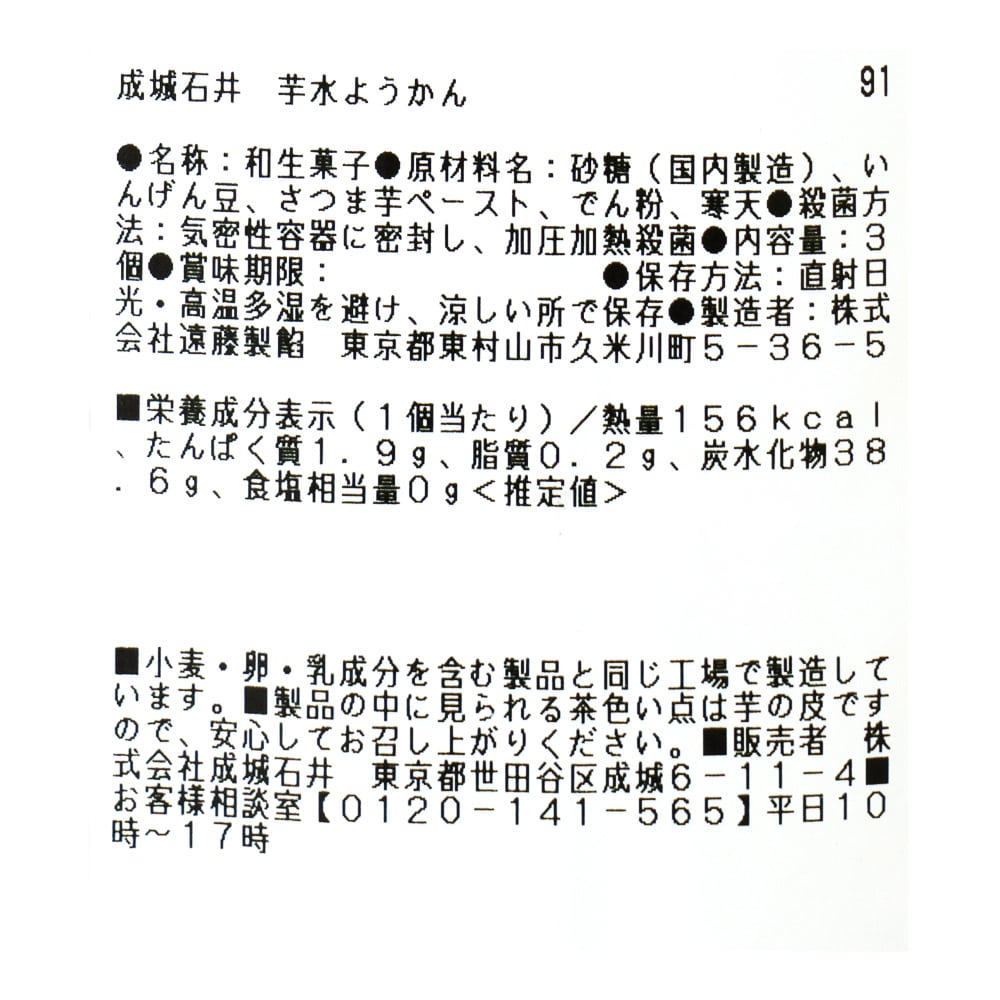 成城石井　芋水ようかん　91
●名称：和生菓子●原材料名：砂糖（国内製造）、い
んげん豆、さつま芋ペースト、でん粉、寒天●殺菌方
法：気密性容器に密封し、加圧加熱殺菌●内容量：３
個●賞味期限：　　　　　　　　　●保存方法：直射日
光・高温多湿を避け、涼しい所で保存●製造者：株式
会社遠藤製餡　東京都東村山市久米川町５－３６－５
■栄養成分表示（１個当たり）／熱量１５６ｋｃａｌ
、たんぱく質１．９ｇ、脂質０．２ｇ、炭水化物３８
．６ｇ、食塩相当量０ｇ＜推定値＞
■小麦・卵・乳成分を含む製品と同じ工場で製造して
います。■製品の中に見られる茶色い点は芋の皮です
ので、安心してお召し上がりください。■販売者　株
式会社成城石井　東京都世田谷区成城６－１１－４■
お客様相談室【０１２０－１４１－５６５】平日１０
時～１７時